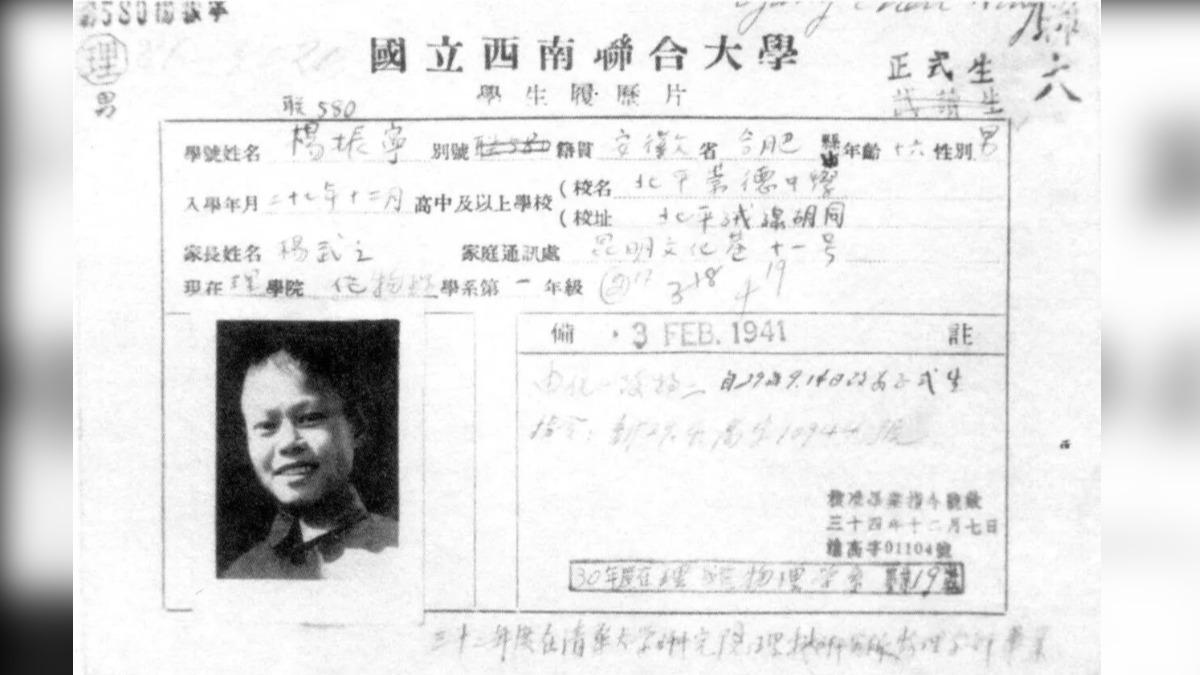 第580楊振寧
理
男
國立西南聯合大學
學生履歷片
正式生
試讀生
六
联580
學號姓名 楊振寧 別號 联580 籍貫 安徽 省 合肥 縣市 年齡 十六 性別 男
入學年月 二十七年十二月 高中及以上學校 (校名 北平崇德中學
(校址 北平絨線胡同
家長姓名 楊武之 家庭通訊處 昆明文化巷十一号
現在 理 學院 化 物理 學系第 一 年級 ② 17 3 18 4 19
備 3 FEB. 1941 註
自29年9.14日改為正式生
指令:
核准畢業指令號數
三十四年十二月七日
高字01104號
30年度在理學院物理學系 19
三十二年度在清華大學研究院理科研究所物理學部畢業